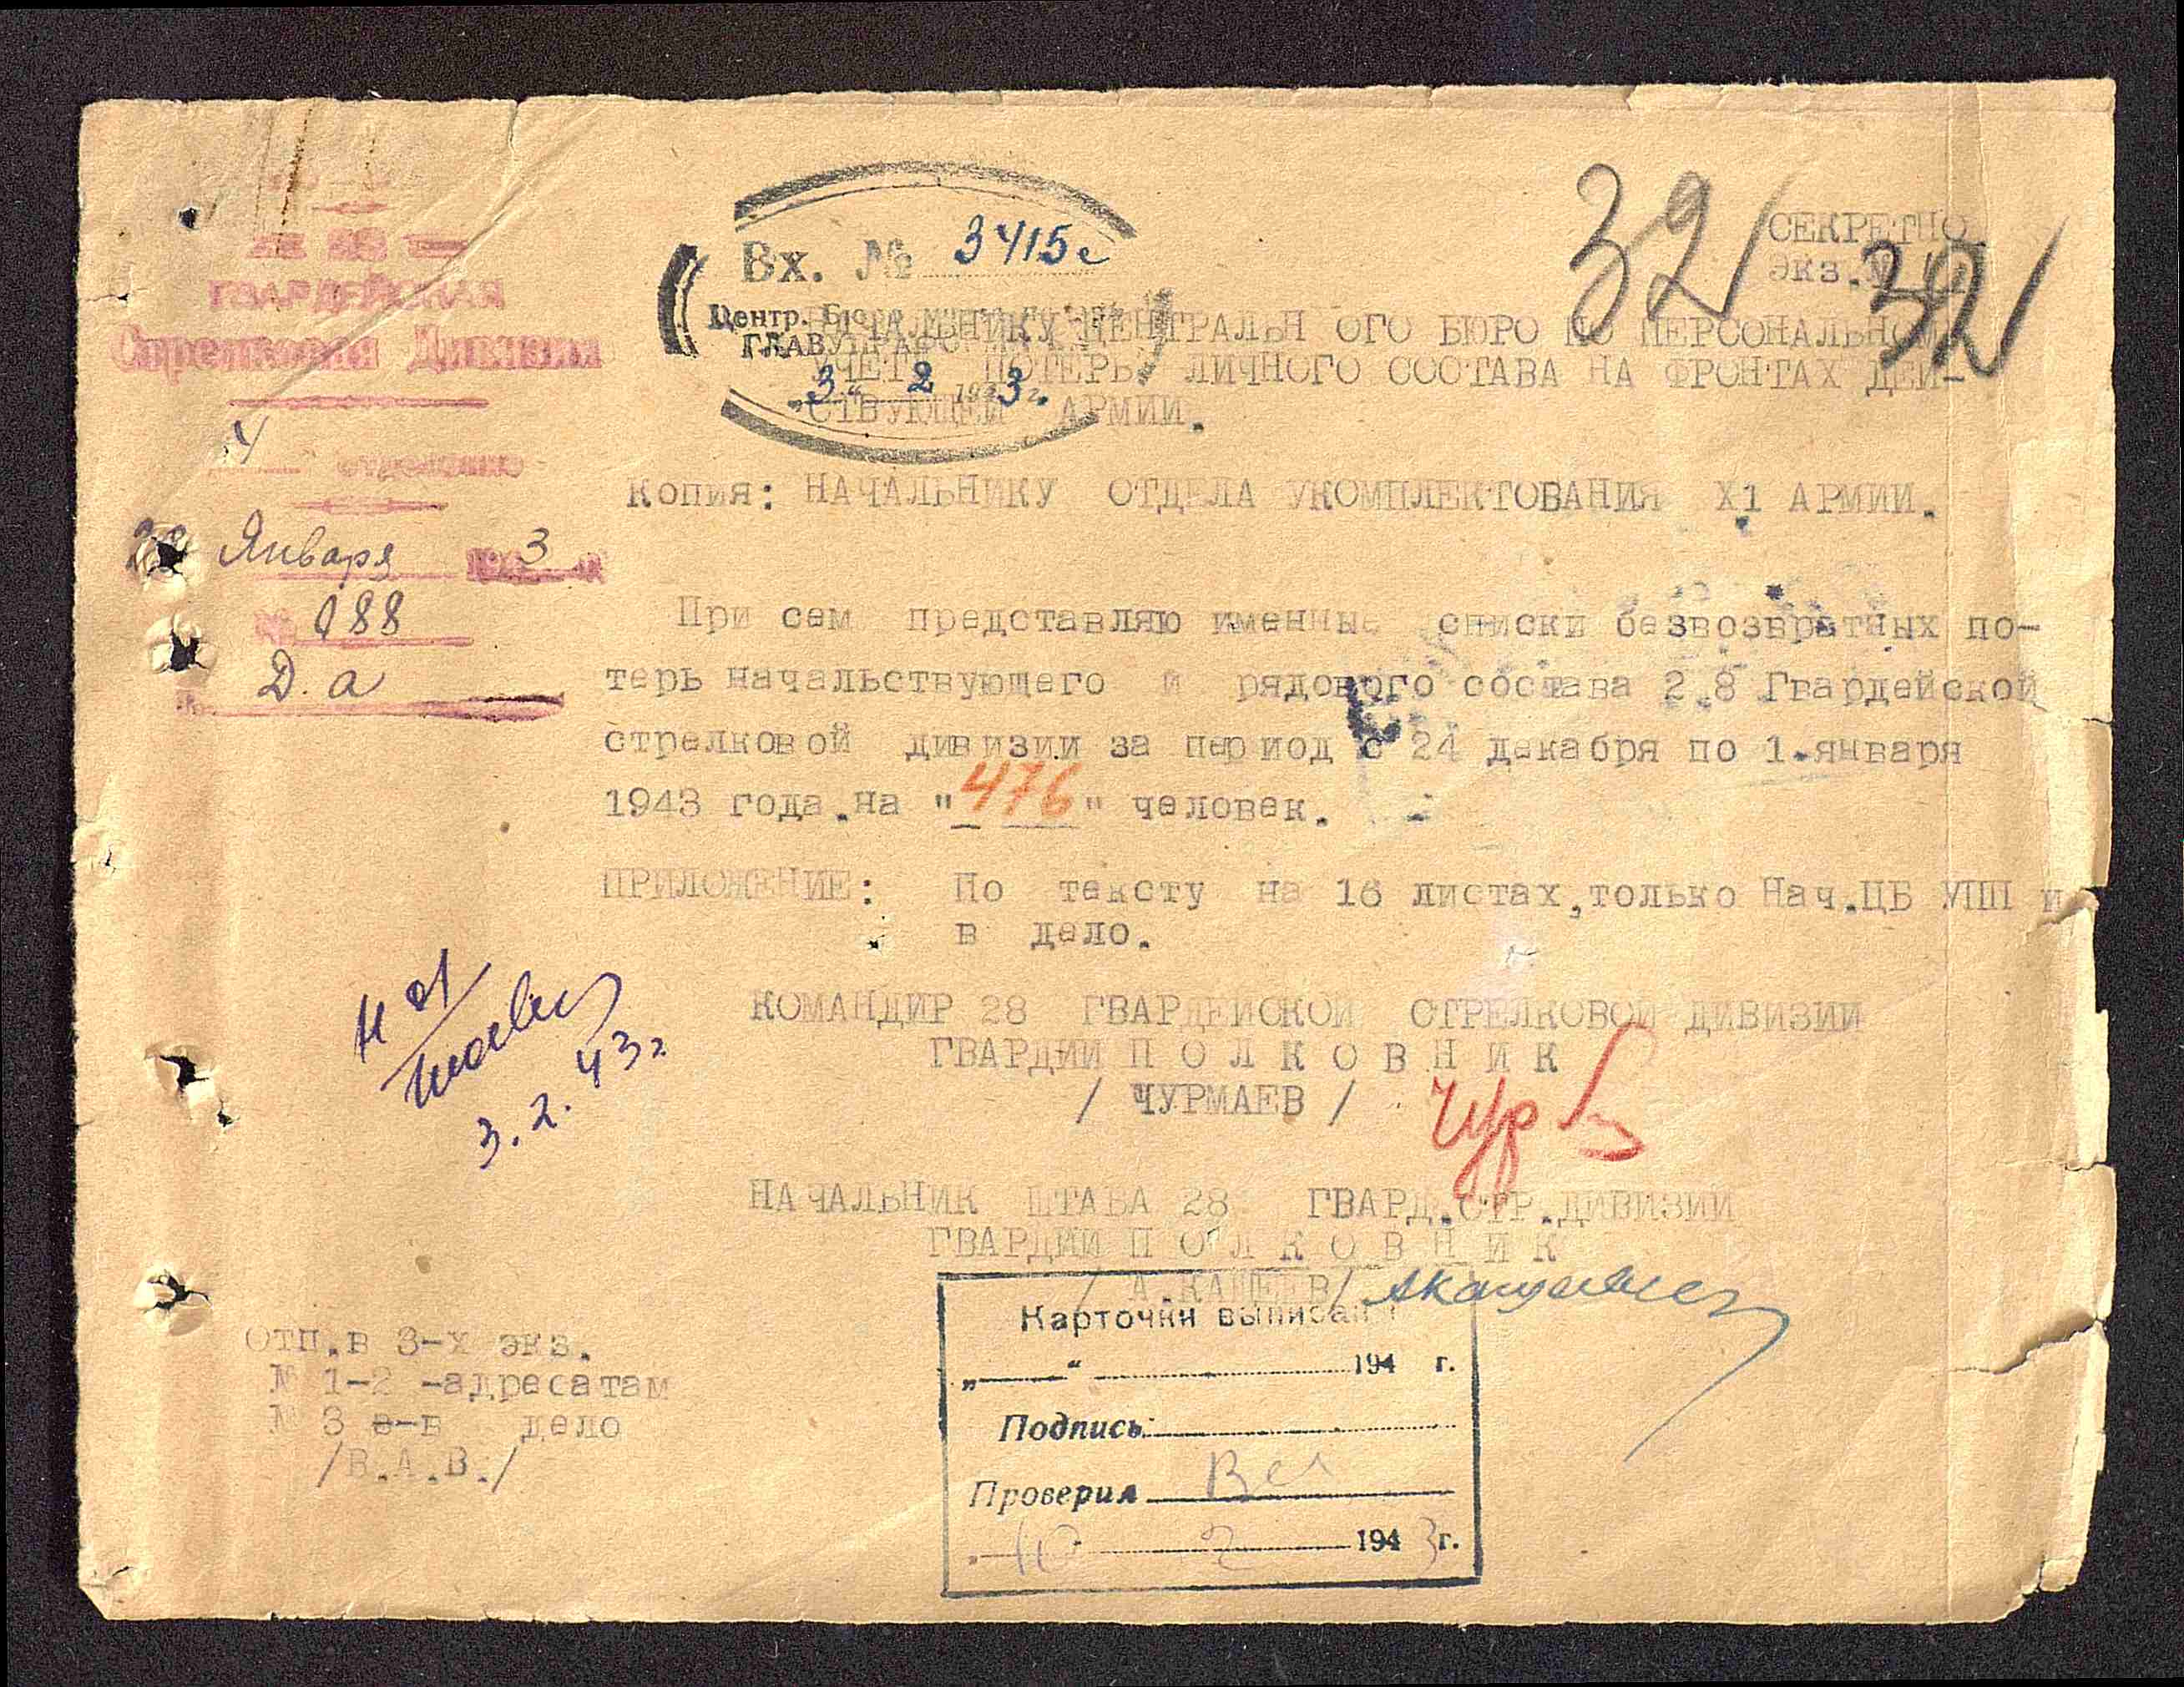 28
ГВАРДЕЙСКАЯ
Стрелковая Дивизия
4
отделение
Января 1943 г.
№ 088
Д. а
Вх. № 3415с
Центр. Бюро
ГЛАВУПРАФОРМ
„3“ 2 1943 г.
32
СЕКРЕТНО
Экз.№
32
НАЧАЛЬНИКУ ЦЕНТРАЛЬН ОГО БЮРО ПО ПЕРСОНАЛЬНОМУ
УЧЕТУ ПОТЕРЬ ЛИЧНОГО СОСТАВА НА ФРОНТАХ ДЕЙ-
СТВУЮЩЕЙ АРМИИ.
Копия: НАЧАЛЬНИКУ ОТДЕЛА УКОМПЛЕКТОВАНИЯ Х1 АРМИИ.
При сем представляю именные списки безвозвратных по-
терь начальствующего и рядового состава 2.8 Гвардейской
стрелковой дивизии за период с 24 декабря по 1.января
1943 года.на "476" человек.
ПРИЛОЖЕНИЕ: По тексту на 16 листах,только Нач.ЦБ УПП и
в дело.
КОМАНДИР 28 ГВАРДЕЙСКОЙ СТРЕЛКОВОЙ ДИВИЗИИ
ГВАРДИИ П О Л К О В Н И К
/ ЧУРМАЕВ /
3.2.43г
НАЧАЛЬНИК ШТАБА 28 ГВАРД.СТР.ДИВИЗИИ
ГВАРДИИ П О Л К О В Н И К
/ А.КАЩЕЕВ/
Карточки выписаны
„ “ 194 г.
Подпись:
Проверил
10 2 1943г.
ОТП.в 3-х экз.
№ 1-2 -адресатам
№ 3 в-в дело
/В.А.В./